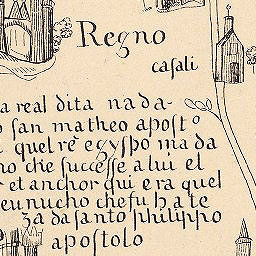 Regno
casali
a real dita nada-
o san matheo apost o
quel re egyspo mada
no che sucesse a lui el
r et anchor qui era quel
eunucho che fu hate
za da santo philippo
apostolo